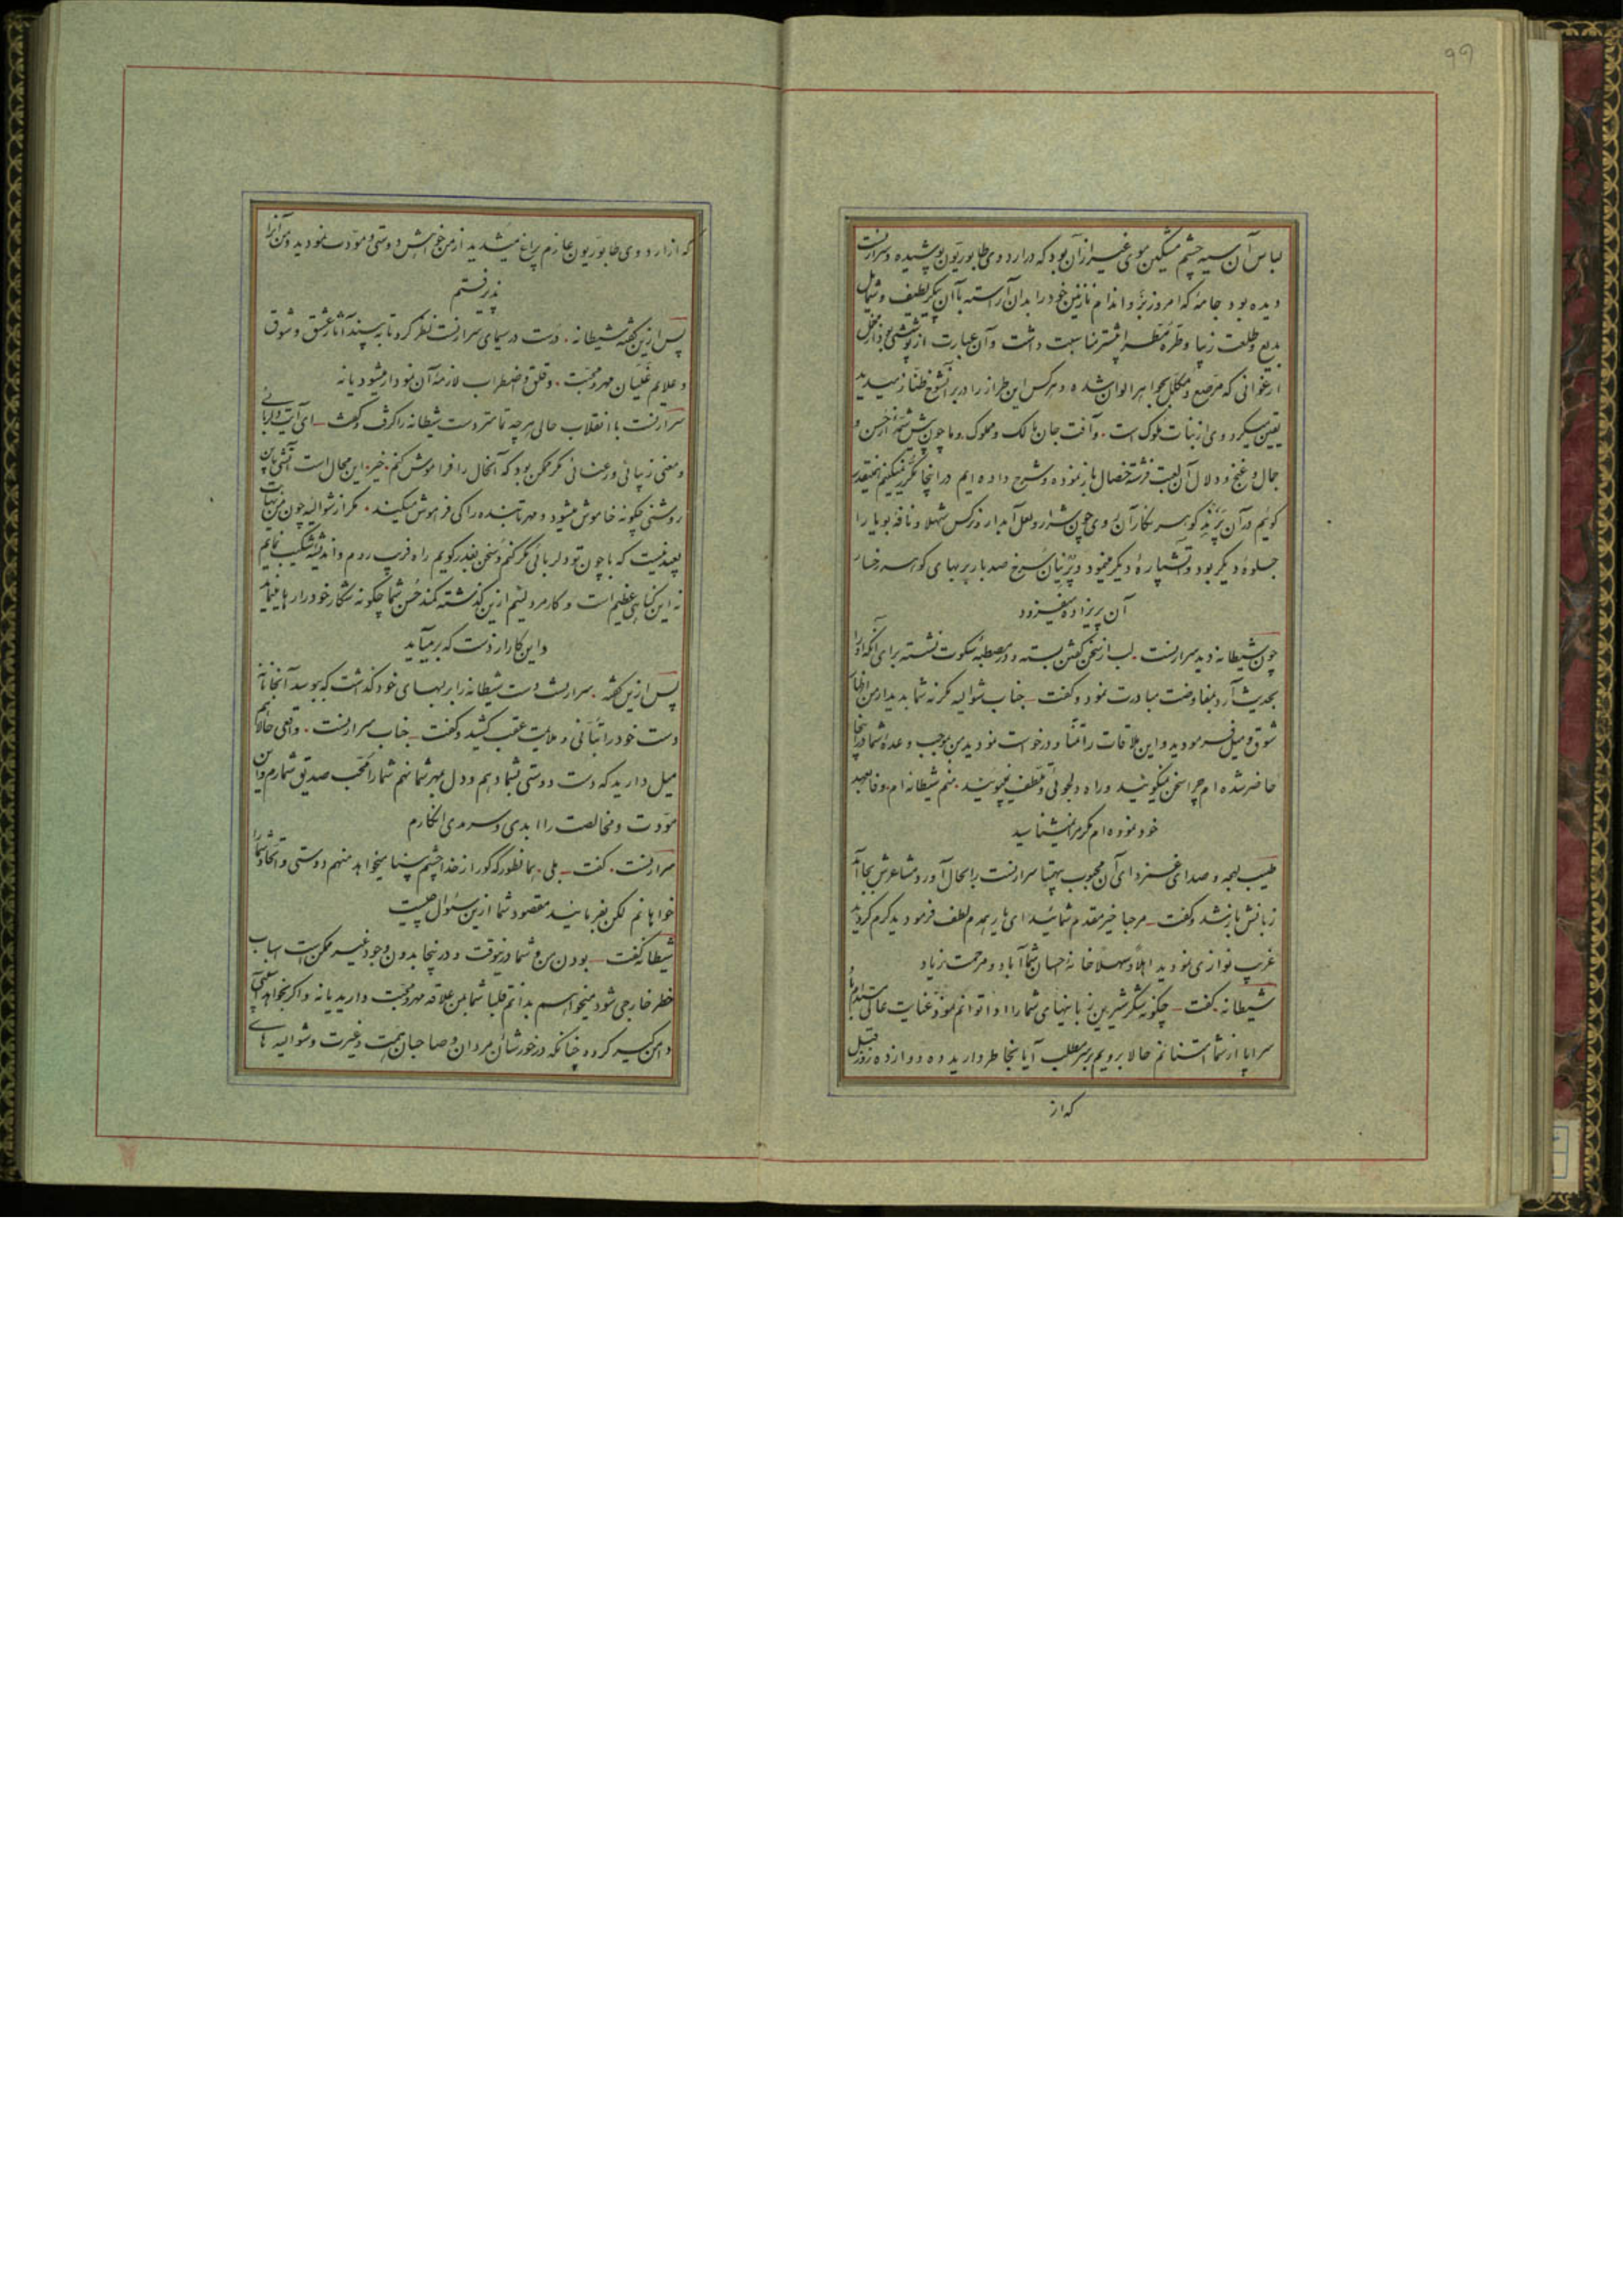 ۹۹
لباس آن سیه چشم مشکین موی غیر از آن بود که در اردوی طابوریون پوشیده و سرارنست
دیده بود جامهٔ که امروز بر و اندام نازنین خود را بدان آراسته با آن پیکر لطیف و شمایل
بدیع و طلعت زیبا و طرهٔ مطرا بیشتر مناسبت داشت و آن عبارت از پوششی بود از مخمل
ارغوانی که مرصع و مکلل بجواهر الوان شده و هرکس این طراز را در بر آنشوخ طناز میدید
یقین میکرد وی از بنات ملوک است. و آفت جان مالک و مملوک. و ما چون پیش شمهٔ از حسن و
جمال و غنج و دلال آن لعبت فرشته خصال باز نموده و شرح داده ایم در اینجا مکرر نمیکنیم همینقدر
کوئیم در آن پرند کوهر نکار آن روی چون شرار و لعل آبدار و نرکس شهلا و نافهٔ بویا را
جلوهٔ دیگر بود و آتشپارهٔ دیگر مینمود و پرنیان سرخ صد بار بر بهای کوهر رخسار
آن پریزاده میفزود
چون شیطانه دید سرارنست. لب از سخن کفتن بسته و در مصطبهٔ سکوت نشسته برای آنکه او را
بحدیث آرد بمفاوضت مبادرت نمود و کفت ــ جناب شوالیه مکر نه شما بدیدار من اظهار
شوق و میل فرمودید و این ملاقات را تمنا و درخواست نمودید من بموجب وعده شما در اینجا
حاضر شده ام چرا سخن نمیکوئید و راه دلجوئی و تلطف نمیپوئید. منم شیطانه ام. وفا بعهد
خود نموده ام مکر مرا نمیشناسید
طیب لهجه و صدای غمزدای آن محبوب بیهمتا سرارنست را بحال آورد و مشاعرش بجا آمد
زبانش باز شد و کفت ــ مرحبا خیر مقدم شمائید ای یار همدم لطف فرمودید کرم کردید
غریب نوازی نمودید اهلا و سهلا خانهٔ احسان شما آباد و مرحمت زیاد
شیطانه. کفت ــ چکونه شکر شیرین زبانیهای شما را ادا توانم نمود عنایت عالی مستدام باد
سراپا از شما امتنانم حالا برویم بر سر مطلب آیا بخاطر دارید ده دوازده روز قبل
که از
که از اردوی طابوریون عازم پراغ میشدید از من خواهش دوستی و مودت نمودید و من آنرا
پذیرفتم
پس از این کفته شیطانه. درست در سیمای سرارنست نظر کرد تا به بیند آثار عشق و شوق
و علایم غلیان مهر و محبت. و قلق و اضطراب لازمهٔ آن نمودار میشود یا نه
سرارنست با انقلاب حالی هرچه تمامتر دست شیطانه را کرفت و کفت ــ ای آیت دلربائی
و معنی زیبائی و رعنائی مکر ممکن بود که آنحال را فراموش کنم. خیر. این محال است آتشی باین
روشنی چکونه خاموش میشود و مهر تابنده را کی فرهوش میکنند. مکر از شوالیهٔ چون من نهایت
بعید نیست که با چون تو دلربائی مکر کنم و سخن بغدر کویم راه فریب روم و اندیشهٔ شکیب نمایم
نه این کناهی عظیم است و کار مرد لئیم از این کذشته کمند حسن شما چکونه شکار خود را رها مینماید
و این کار از دست که برمیآید
پس از این کفته. سرارنست دست شیطانه را بر لبهای خود کذاشت که ببوسد آنجانانه
دست خود را بتأنی و ملایمت عقب کشید و کفت ــ جناب سرارنست. واقعی حالا هم
میل دارید که دست دوستی بشما دهم و دل بمهر شما نهم شما را محب صدیق شمارم و این
مودت و مخالصت را ابدی و سرمدی انکارم
سرارنست. کفت ــ بلی. همانطور که کور از خدا چشم بینا میخواهد منهم دوستی و اتحاد شما را
خواهانم لکن بفرمائید مقصود شما ازین سئوال چیست
شیطانه کفت ــ بودن من و شما در اینوقت و در اینجا بدون وجود غیر ممکن است اسباب
خطر خارجی شود میخواهم بدانم قلبا شما بمن علاقه مهر و محبت دارید یا نه و اکر بخواهد کسی
دامن کیر کردد چنانکه در خور شأن مردان و صاحبان همت و غیرت و شوالیه های